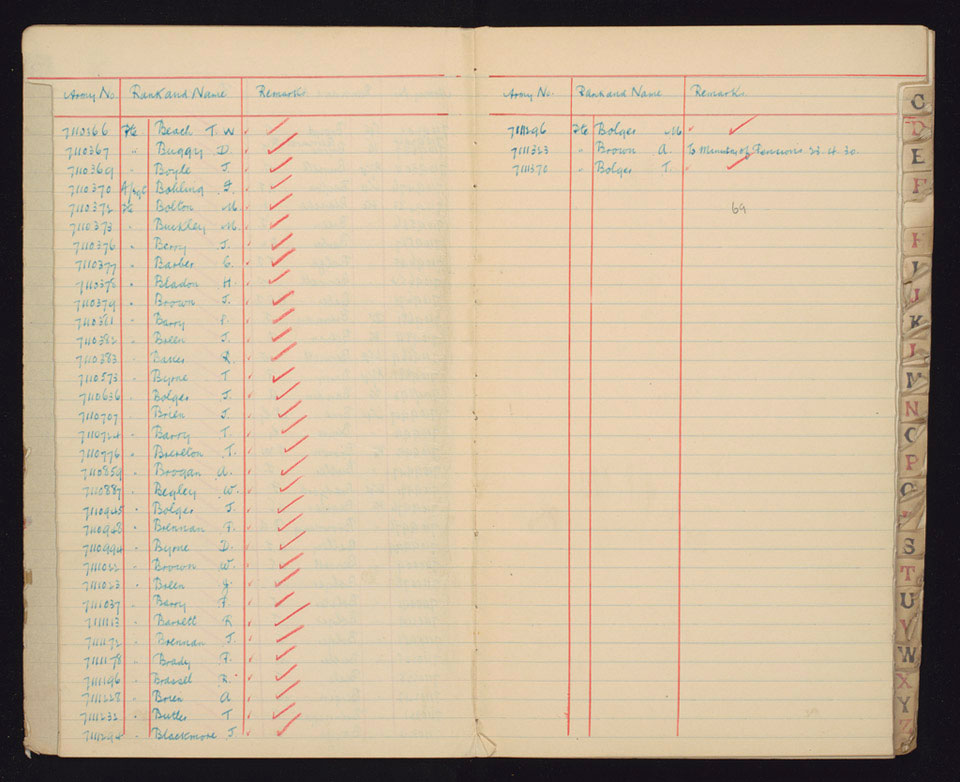 Army No. Rank and Name Remarks
7110366 Pte Beach T. W
7110367 " Buggy D.
7110369 " Boyle J.
7110370 Bohling J.
7110372 Pte Bolton M.
7110373 " Buckley M.
7110376 " Berry J.
7110377 " Barber C.
7110378 " Bladon H.
7110379 " Brown J.
7110381 " Barry P.
7110382 " Boen J.
7110383 " Bates R.
7110573 " Byrne T
7110636 " Bolger J.
7110707 " Brien J.
7110724 " Barry T.
7110776 " Brereton T.
7110859 " Brogan A.
7110887 " Begley W.
7110945 " Bolger J.
7110948 " Brennan P.
7110994 " Byrne D.
7111022 " Brown W.
7111023 " Bolen J.
7111037 " Berry P.
7111113 " Barrett R
7111172 " Brennan J.
7111178 " Brady P.
7111196 " Brassel R.
7111228 " Boren A
7111232 " Butler T
7111294 " Blackmore J
Army No. Rank and Name Remarks
7111296 Pte Bolger M
7111323 " Brown A. To Ministry of Pensions 23.4.30.
7111370 " Bolger T.
69
C
D
E
F
H
I
J
K
L
M
N
O
P
Q
S
T
U
V
W
X
Y
Z